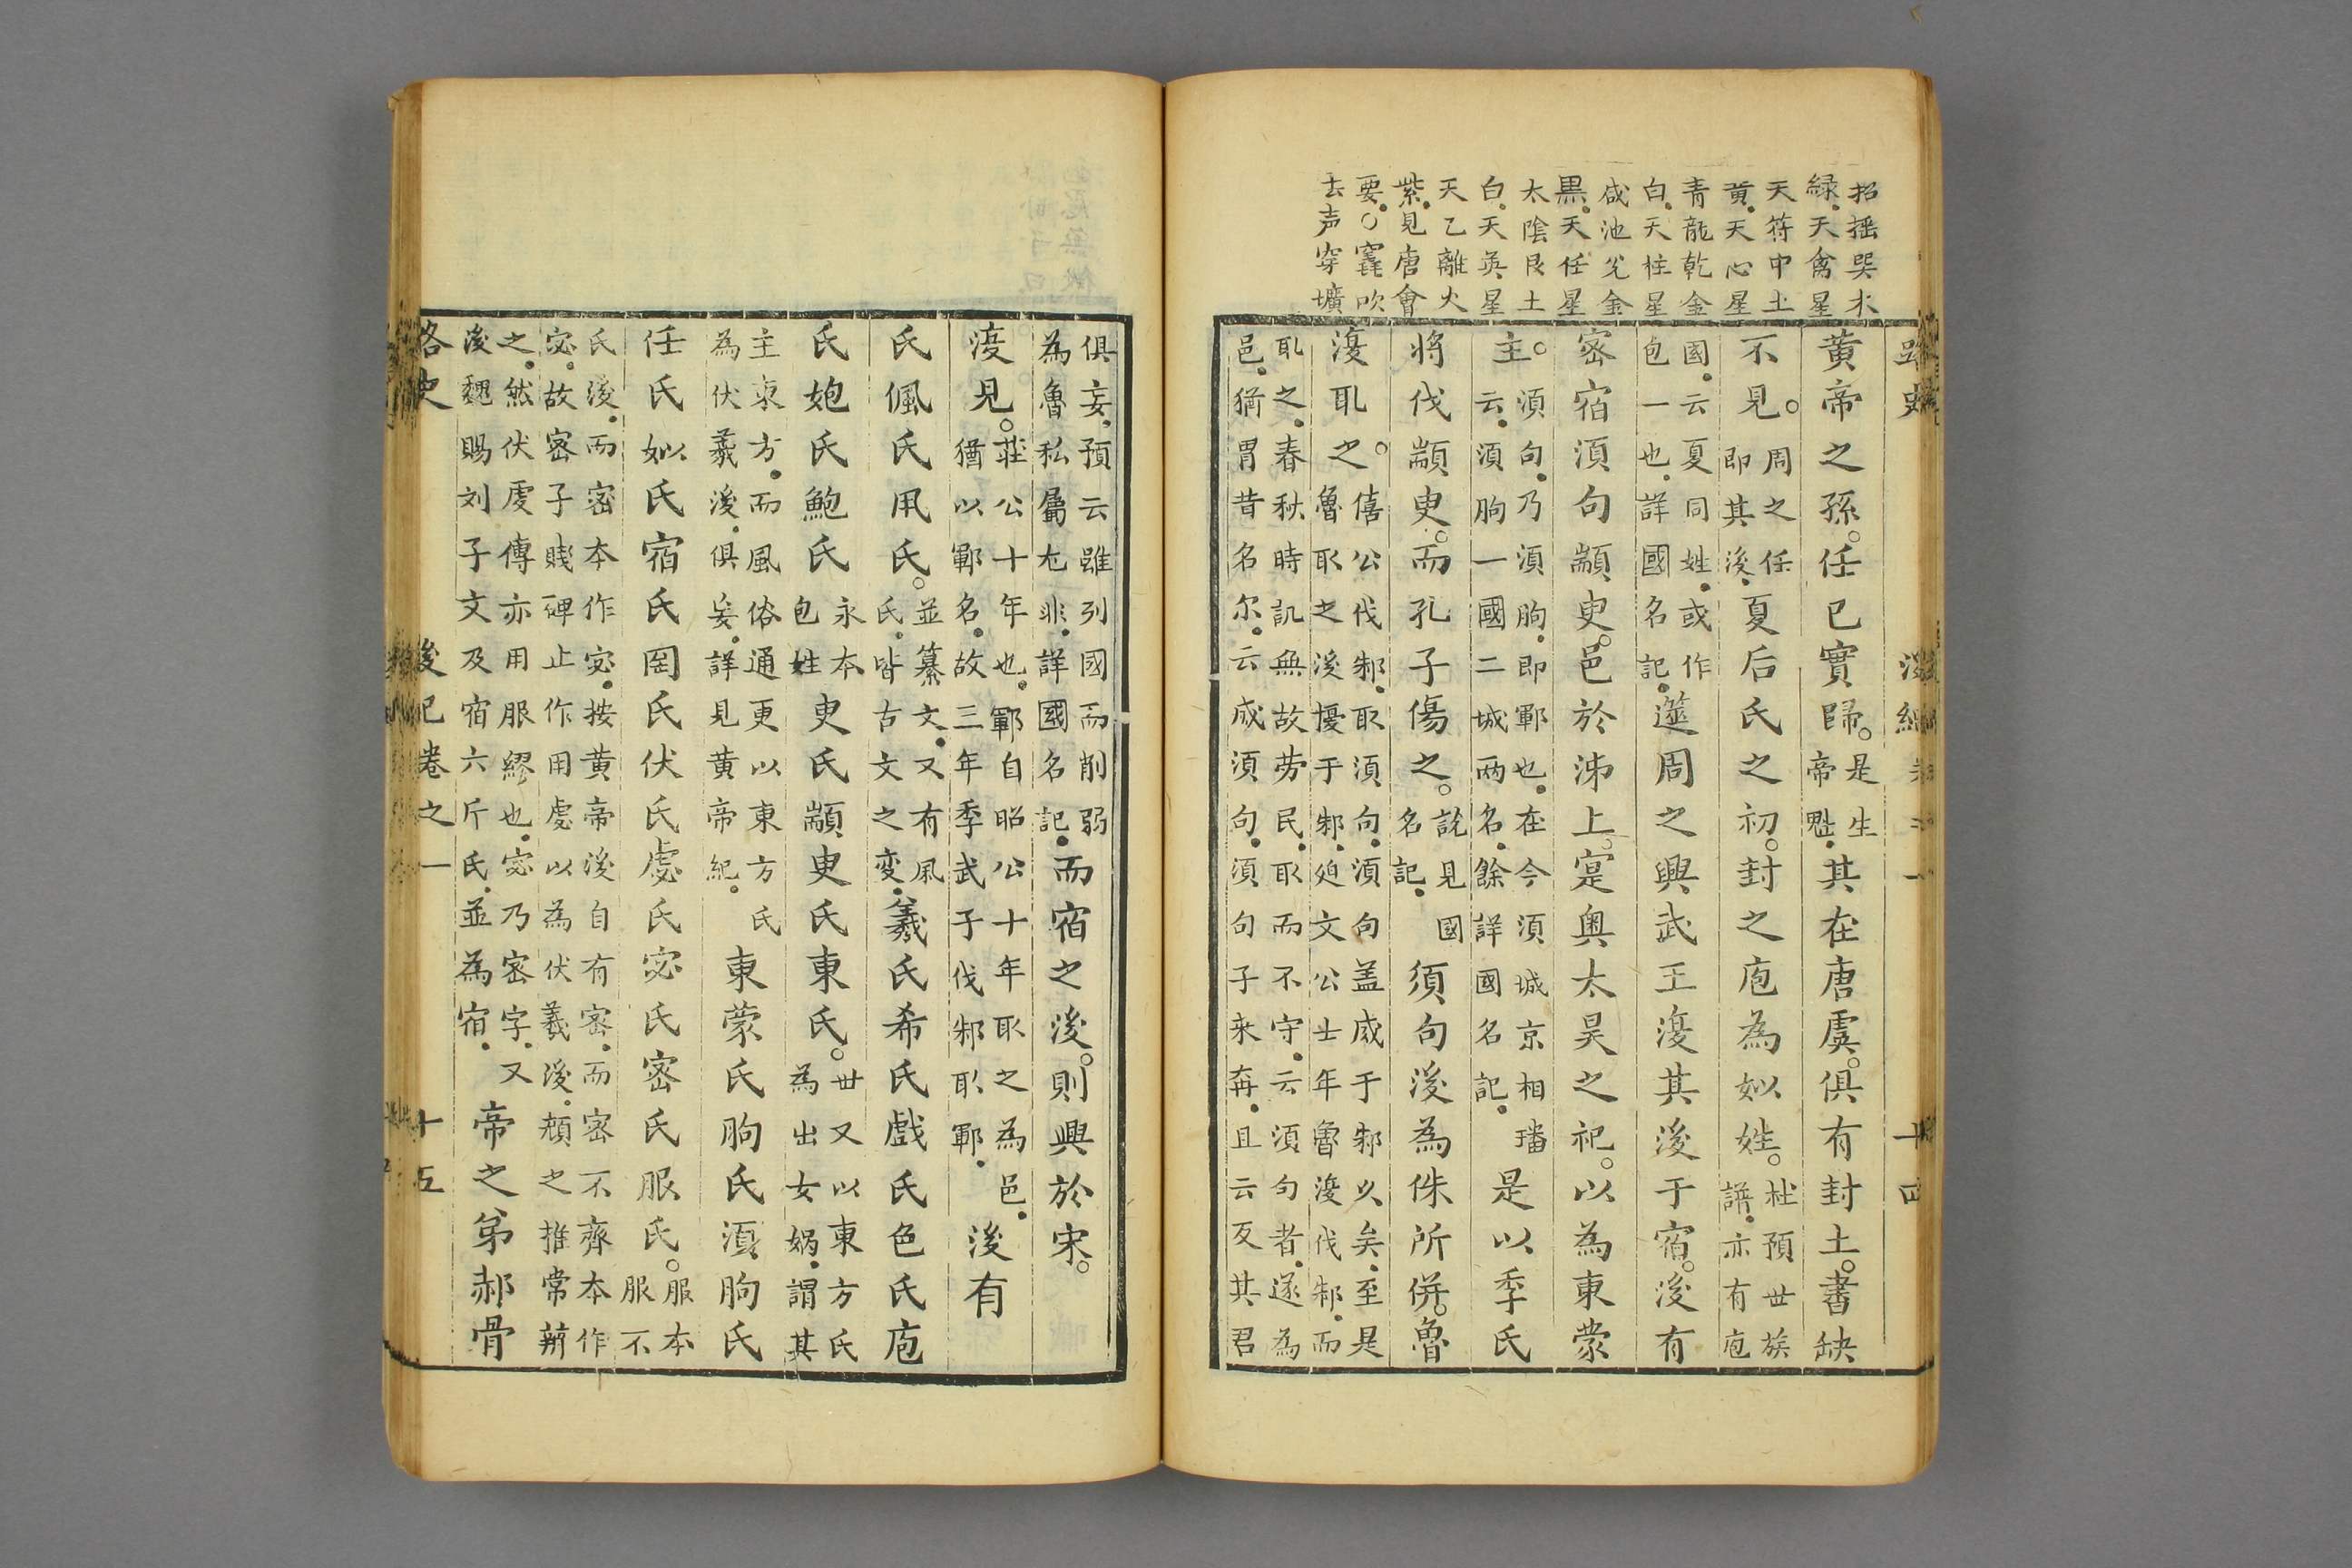 招摇巽木
緑天禽星
天符中土
黄天心星
青龍乾金
白天柱星
咸池兊金
黒天任星
太陰艮土
白天英星
天乙離火
紫見唐會
要○窾吹
去声穿壙
黄帝之孫○任已實歸○是生帝魁其在唐虞○俱有封土○書缺
不見○周之任即其後夏后氏之初○封之庖為姒姓○杜預世族譜亦有庖
國云夏同姓或作包一也詳國名記遰周之興武王復其後于宿○後有
密宿須句顓臾○邑於沛上○寔奥太昊之祀○以為東蒙
主○須句乃須朐即鄆也在今須城京相璠云須朐一國二城兩名餘詳國名記是以季氏
將伐顓臾○而孔子傷之○説見國名記須句後為侏所併○魯
復取之○僖公伐邾取須句須句盖咸于邾乆矣至是魯取之後擾于邾廹文公士年魯復伐邾而
取之春秋時訊無故劳民取而不守云須句者遂為邑猶胃昔名尔云成須句須句子来奔且云反其君
路史
十四
俱妄預云雖列國而削弱為魯私屬尢非詳國名記而宿之後○則興於宋○
復見○莊公十年也鄆自昭公十年取之為邑猶以鄆名故三年季武子伐邾取鄆後有
氏佩氏凧氏○並纂文又有凨氏皆古文之変羲氏希氏戲氏色氏庖
氏炮氏鮑氏永本包姓臾氏顓臾氏東氏○世又以東方氏為出女媧謂其
主東方而風俗通更以東方氏為伏羲後俱妄詳見黄帝紀○東蒙氏朐氏須朐氏
任氏姒氏宿氏罔氏伏氏虙氏宓氏密氏服氏○服本服不
氏後而密本作宓按黄帝後自有密而密不齊本作宓故密子賎碑止作用虙以為伏羲後頛之推常辨
之然伏虔傳亦用服繆也宓乃密字又後魏賜刘子文及宿六斤氏並為宿帝之弟郝骨
路史
後记卷之一
十五